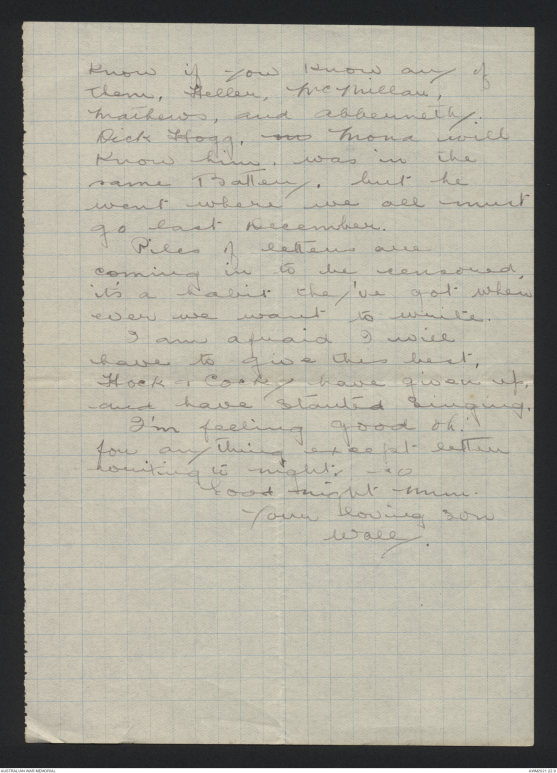 know if you know any of
them, Heller, McMillan,
Mathews, and Abbernethy.
Dick Hogg, Mona will
know him, was in the
same Battery, but he
went where we all must
go last December.
Piles of letters are
coming in to be censored,
it's a habit they've got when
ever we want to write.
I am afraid I will
have to give this best,
Hock & Cocky have given up,
and have started singing.
I'm feeling good ok.
for anything except letter
writing to night, so
Good night Mum.
Your loving son
Wally.
AUSTRALIAN WAR MEMORIAL